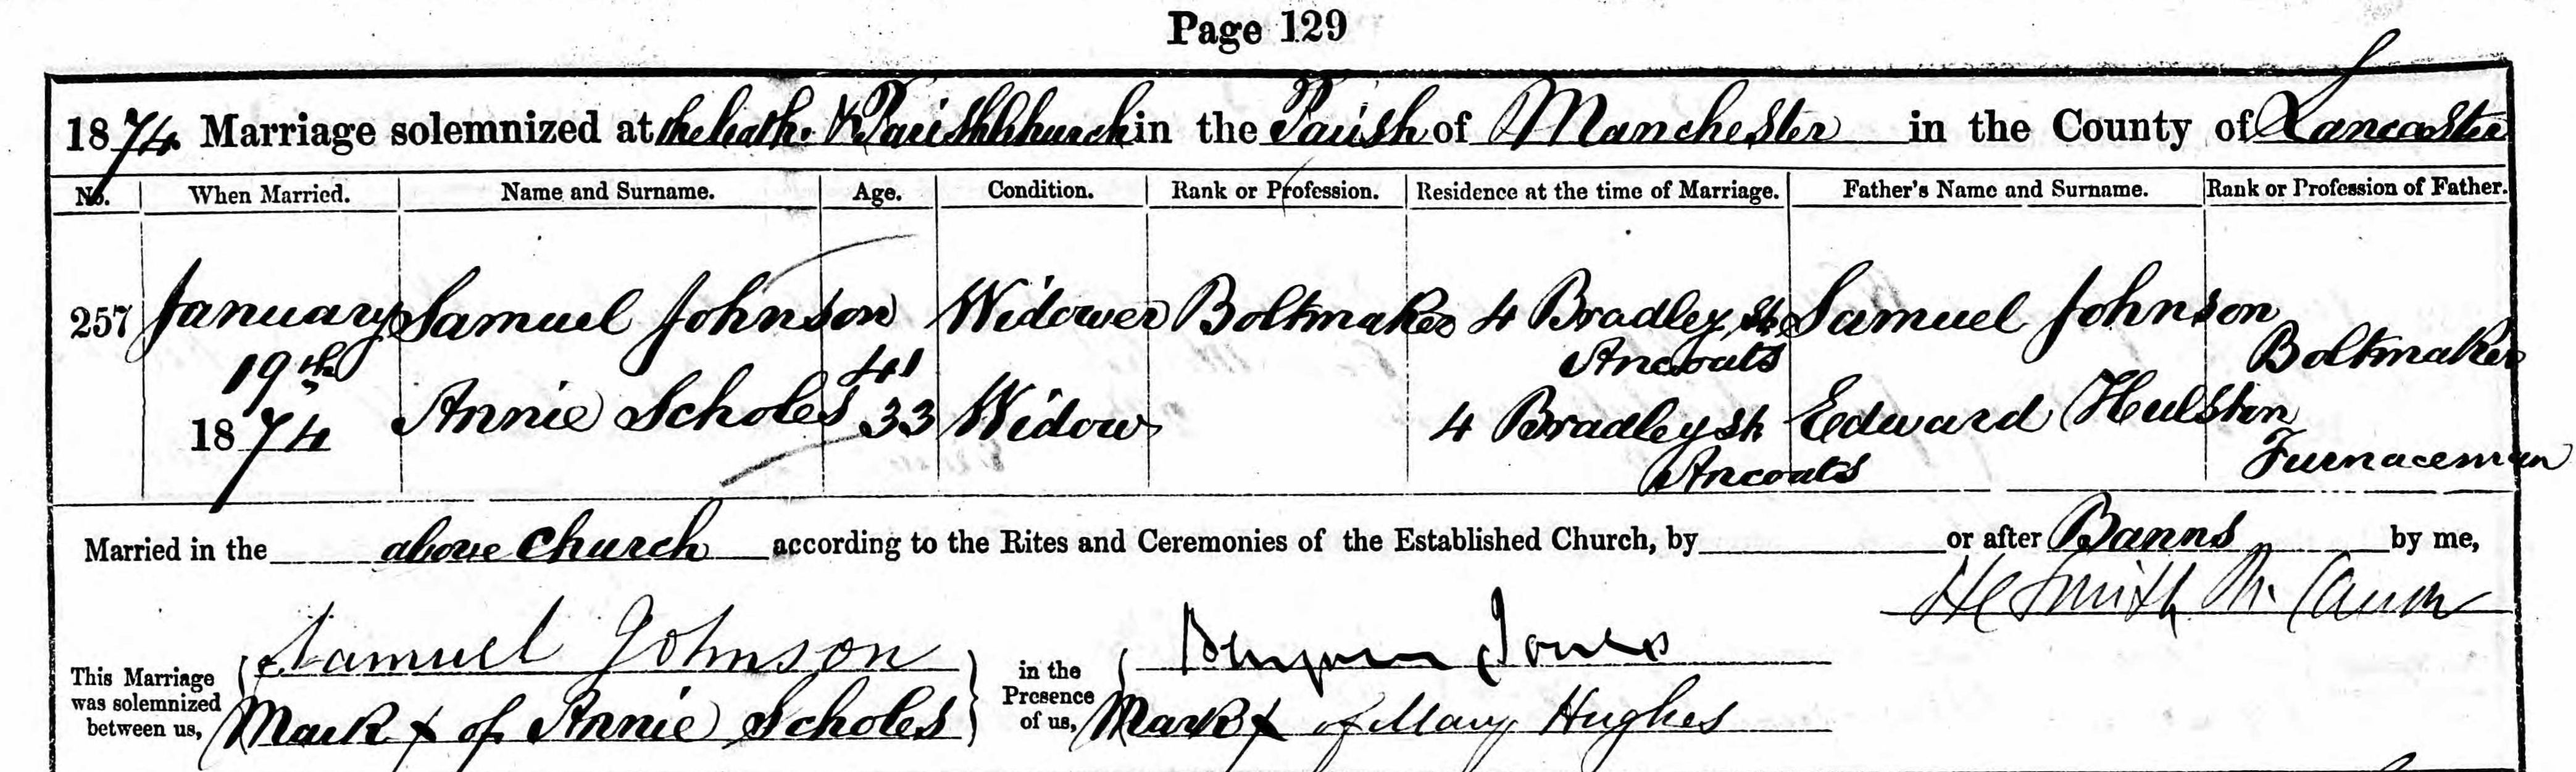 Page 129
1874 Marriage solemnized at the Cath. & Parish Church in the Parish of Manchester in the County of Lancaster
No. When Married. Name and Surname. Age. Condition. Rank or Profession. Residence at the time of Marriage. Father's Name and Surname. Rank or Profession of Father.
257 January Samuel Johnson Widower Boltmaker 4 Bradley St Samuel Johnson
19th 41 Ancoats Boltmaker
1874 Annie Scholes 33 Widow 4 Bradley St Edward Hulston
Ancoats Furnaceman
Married in the above Church according to the Rites and Ceremonies of the Established Church, by or after Banns by me,
Smith M. Canon
This Marriage was solemnized between us, Samuel Johnson in the Presence of us, Benjamin Jones
Mark x of Annie Scholes Mark x of Mary Hughes